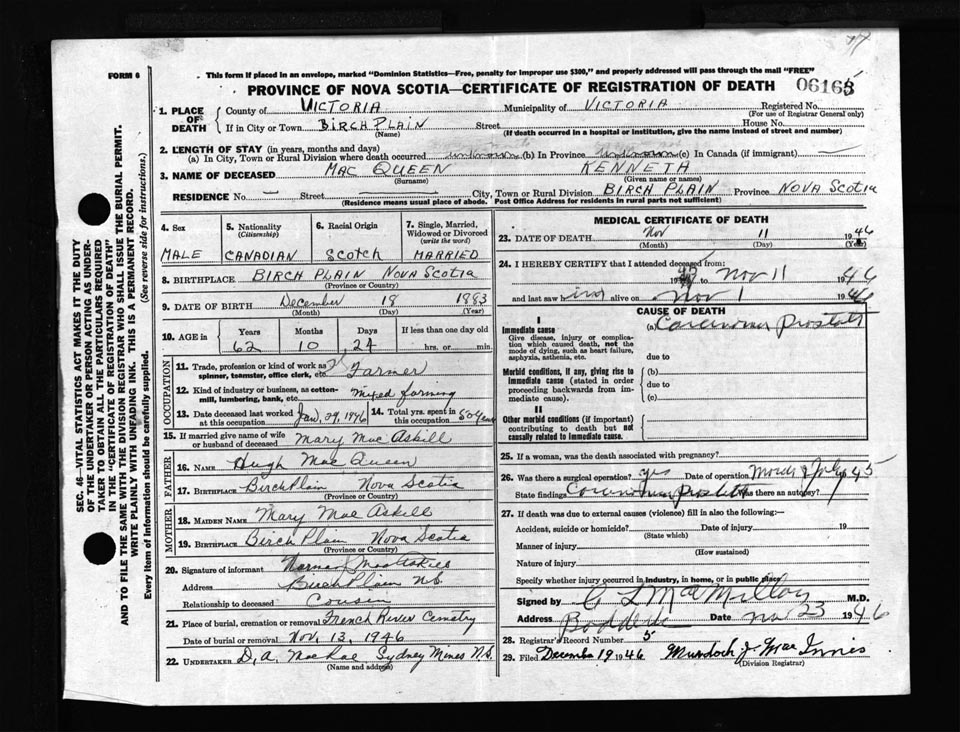 FORM 6
This form if placed in an envelope, marked "Dominion Statistics—Free, penalty for improper use $300," and properly addressed will pass through the mail "FREE"
PROVINCE OF NOVA SCOTIA—CERTIFICATE OF REGISTRATION OF DEATH
06165
SEC. 46—VITAL STATISTICS ACT MAKES IT THE DUTY
OF THE UNDERTAKER OR PERSON ACTING AS UNDER-
TAKER TO OBTAIN ALL THE PARTICULARS REQUIRED
IN THE "CERTIFICATE OF REGISTRATION OF DEATH"
AND TO FILE THE SAME WITH THE DIVISION REGISTRAR WHO SHALL ISSUE THE BURIAL PERMIT.
WRITE PLAINLY WITH UNFADING INK. THIS IS A PERMANENT RECORD.
Every item of information should be carefully supplied. (See reverse side for instructions.)
1. PLACE OF DEATH
County of VICTORIA Municipality of VICTORIA Registered No.
(For use of Registrar General only)
If in City or Town BIRCH PLAIN Street House No.
(Name) (If death occurred in a hospital or institution, give the name instead of street and number)
2. LENGTH OF STAY (in years, months and days)
(a) In City, Town or Rural Division where death occurred (b) In Province (c) In Canada (if immigrant)
3. NAME OF DECEASED MAC QUEEN KENNETH
(Surname) (Given name or names)
RESIDENCE No. — Street — City, Town or Rural Division BIRCH PLAIN Province NOVA SCOTIA
(Residence means usual place of abode. Post Office Address for residents in rural parts not sufficient)
4. Sex
MALE
5. Nationality
(Citizenship)
CANADIAN
6. Racial Origin
Scotch
7. Single, Married, Widowed or Divorced
(write the word)
MARRIED
8. BIRTHPLACE BIRCH PLAIN NOVA SCOTIA
(Province or Country)
9. DATE OF BIRTH December 18 1883
(Month) (Day) (Year)
10. AGE in
Years Months Days If less than one day old
62 10 24 hrs. or min.
OCCUPATION
11. Trade, profession or kind of work as spinner, teamster, office clerk, etc. Farmer
12. Kind of industry or business, as cotton-mill, lumbering, bank, etc. Mixed farming
13. Date deceased last worked at this occupation Jan. 29, 1946
14. Total yrs. spent in this occupation 50 years
15. If married give name of wife or husband of deceased Mary Mac Askill
FATHER
16. NAME Hugh Mac Queen
17. BIRTHPLACE Birch Plain Nova Scotia
(Province or Country)
MOTHER
18. MAIDEN NAME Mary Mac Askill
19. BIRTHPLACE Birch Plain Nova Scotia
(Province or Country)
20. Signature of informant Norman MacAskill
Address Birch Plain N.S.
Relationship to deceased Cousin
21. Place of burial, cremation or removal French River Cemetry
Date of burial or removal Nov. 13, 1946
22. UNDERTAKER D. A. MacRae Sydney Mines N.S.
(Name and address)
MEDICAL CERTIFICATE OF DEATH
23. DATE OF DEATH Nov 11 1946
(Month) (Day) (Year)
24. I HEREBY CERTIFY that I attended deceased from:
1945 to Nov 11 1946
and last saw him alive on Nov 1 1946
CAUSE OF DEATH
I
Immediate cause
Give disease, injury or complication which caused death, not the mode of dying, such as heart failure, asphyxia, asthenia, etc.
(a) Carcinoma Prostate
due to
Morbid conditions, if any, giving rise to immediate cause (stated in order proceeding backwards from immediate cause).
(b)
due to
(c)
II
Other morbid conditions (if important) contributing to death but not causally related to immediate cause.
25. If a woman, was the death associated with pregnancy?
26. Was there a surgical operation? yes Date of operation July 45
State findings Carcinoma Prostate Was there an autopsy?
27. If death was due to external causes (violence) fill in also the following:—
Accident, suicide or homicide? Date of injury 19
(State which)
Manner of injury
(How sustained)
Nature of injury
Specify whether injury occurred in industry, in home, or in public place
Signed by C L MacMillan M.D.
Address Baddeck Date Nov 23 1946
28. Registrar's Record Number 5
29. Filed December 19 1946 Murdoch J. Mac Innis
(Division Registrar)